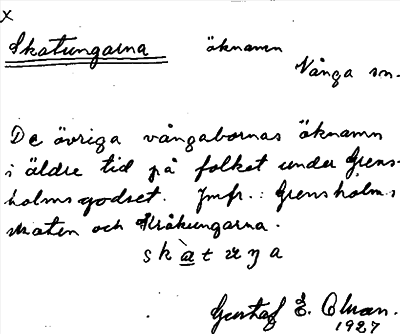 x
Skatungarna öknamn
Vånga sn.
De övriga vångabornas öknamn
i äldre tid på folket under Grens-
holmsgodset. Jmfr.: Grensholms
skaten och Kråkungarna.
skàtuŋa
Gustaf E.
1927